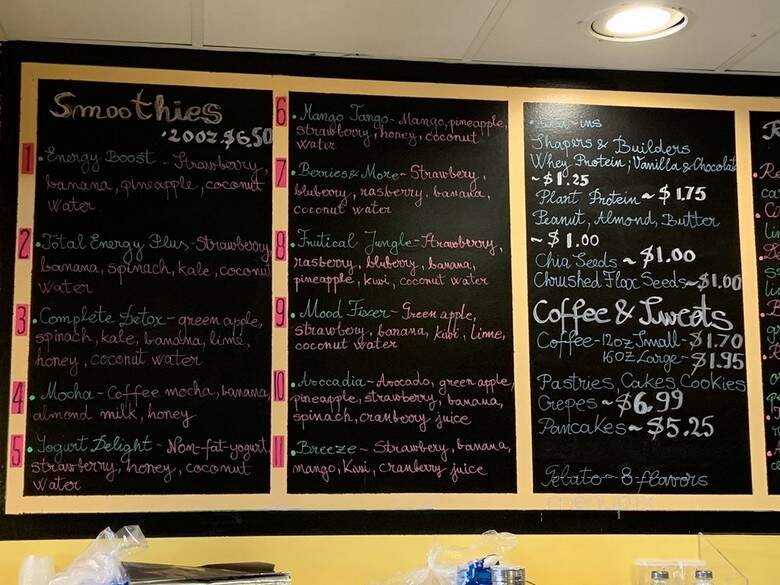 Smoothies
20oz. $6.50
1 Energy Boost - Strawberry,
banana, pineapple, coconut
Water
2 Total Energy Plus - Strawberry
banana, spinach, kale, coconut
Water
3 Complete Detox - green apple,
spinach, kale, banana, lime,
honey, coconut water
4 Mocha - Coffee mocha, banana,
almond milk, honey
5 Yogurt Delight - Non-fat-yogurt,
strawberry, honey, coconut
Water
6 Mango Tango - Mango, pineapple,
strawberry, honey, coconut
Water
7 Berries & More - Strawbery,
bluberry, rasberry, banana,
coconut water
8 Frutical Jungle - Strawberry,
rasberry, bluberry, banana,
pineapple, kiwi, coconut Water
9 Mood Fixer - Green apple,
strawbery, banana, kiwi, lime,
coconut water
10 Avocadia - Avocado, green apple,
pineapple, strawberry, banana,
spinach, cranberry juice
11 Breeze - Strawbery, banana,
mango, Kiwi, cranbery juice
ins
Shapers & Builders
Whey Protein; Vanilla & Chocolate
~ $1.25
Plant Protein ~ $1.75
Peanut, Almond, Butter
~ $1.00
Chia Seeds ~ $1.00
Chrushed Flax Seeds ~ $1.00
Coffee & Tweets
Coffee - 12oz Small - $1.70
16oz Large - $1.95
Pastries, Cakes, Cookies
Crepes ~ $6.99
Pancakes ~ $5.25
Gelato ~ 8 flavors